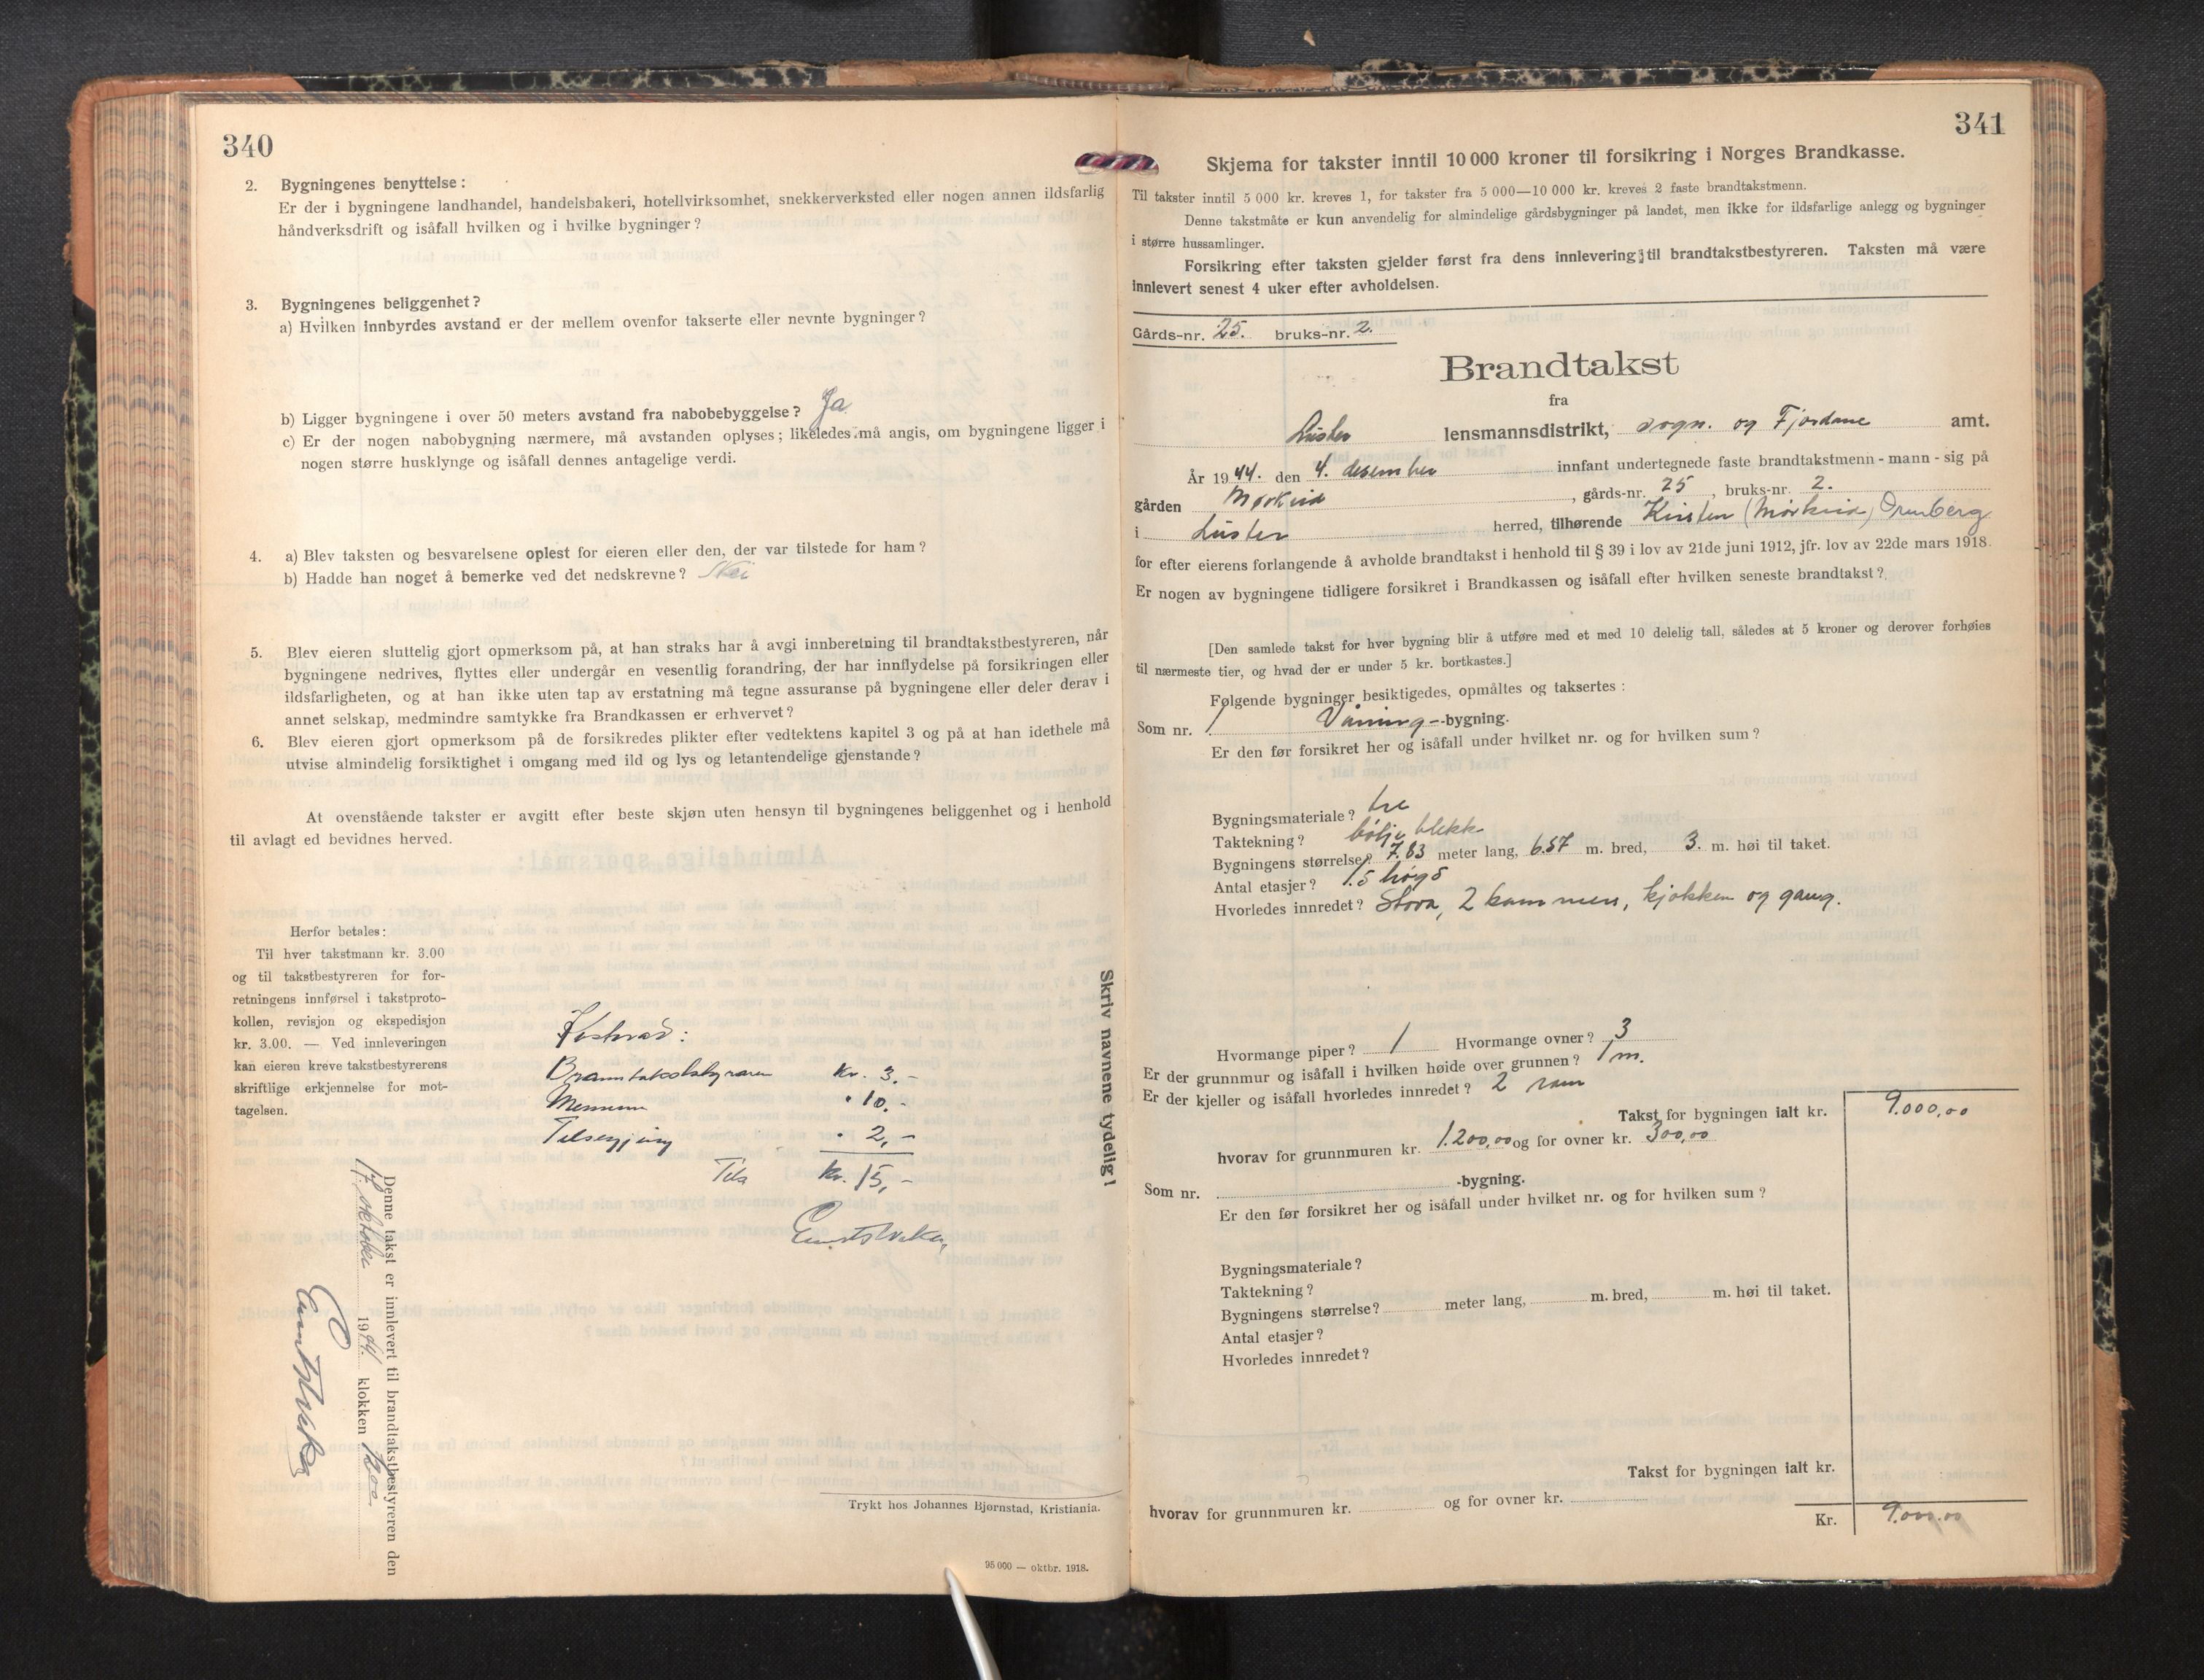 340
2. Bygningenes benyttelse:
Er der i bygningene landhandel, handelsbakeri, hotellvirksomhet, snekkerverksted eller nogen annen ildsfarlig
håndverksdrift og isåfall hvilken og i hvilke bygninger?
3. Bygningenes beliggenhet?
a) Hvilken innbyrdes avstand er der mellem ovenfor takserte eller nevnte bygninger?
b) Ligger bygningene i over 50 meters avstand fra nabobebyggelse? Ja
c) Er der nogen nabobygning nærmere, må avstanden oplyses; likeledes må angis, om bygningene ligger i
nogen større husklynge og isåfall dennes antagelige verdi.
4. a) Blev taksten og besvarelsene oplest for eieren eller den, der var tilstede for ham?
b) Hadde han noget å bemerke ved det nedskrevne?
5. Blev eieren sluttelig gjort opmerksom på, at han straks har å avgi innberetning til brandtakstbestyreren, når
bygningene nedrives, flyttes eller undergår en vesentlig forandring, der har innflydelse på forsikringen eller
ildsfarligheten, og at han ikke uten tap av erstatning må tegne assuranse på bygningene eller deler derav i
annet selskap, medmindre samtykke fra Brandkassen er erhvervet?
6. Blev eieren gjort opmerksom på de forsikredes plikter efter vedtektens kapitel 3 og på at han idethele må
utvise almindelig forsiktighet i omgang med ild og lys og letantendelige gjenstande?
At ovenstående takster er avgitt efter beste skjøn uten hensyn til bygningenes beliggenhet og i henhold
til avlagt ed bevidnes herved.
Herfor betales:
Til hver takstmann kr. 3.00
og til takstbestyreren for for-
retningens innførsel i takstproto-
kollen, revisjon og ekspedisjon
kr. 3.00. — Ved innleveringen
kan eieren kreve takstbestyrerens
skriftlige erkjennelse for mot-
tagelsen.
Kostnad:
Branntakstbestyraren kr. 3.-
Mennene " 10.-
" 2,-
kr. 15,-
Denne takst er innlevert til brandtakstbestyreren den
17. oktober 1944. klokken 12.00
Skriv navnene tydelig!
Trykt hos Johannes Bjørnstad, Kristiania.
95 000 — oktbr. 1918.
341
Skjema for takster inntil 10 000 kroner til forsikring i Norges Brandkasse.
Til takster inntil 5 000 kr. kreves 1, for takster fra 5 000—10 000 kr. kreves 2 faste brandtakstmenn.
Denne takstmåte er kun anvendelig for almindelige gårdsbygninger på landet, men ikke for ildsfarlige anlegg og bygninger
i større hussamlinger.
Forsikring efter taksten gjelder først fra dens innlevering til brandtakstbestyreren. Taksten må være
innlevert senest 4 uker efter avholdelsen.
Gårds-nr. 25. bruks-nr. 2.
Brandtakst
fra
Luster lensmannsdistrikt, Sogn. og Fjordane amt.
År 1944. den 4. desember innfant undertegnede faste brandtakstmenn - mann - sig på
gården Mørkrid, gårds-nr. 25, bruks-nr. 2.
i Luster herred, tilhørende Kirsten (Mørkrid)
for efter eierens forlangende å avholde brandtakst i henhold til § 39 i lov av 21de juni 1912, jfr. lov av 22de mars 1918.
Er nogen av bygningene tidligere forsikret i Brandkassen og isåfall efter hvilken seneste brandtakst?
[Den samlede takst for hver bygning blir å utføre med et med 10 delelig tall, således at 5 kroner og derover forhøies
til nærmeste tier, og hvad der er under 5 kr. bortkastes.]
Følgende bygninger besiktigedes, opmåltes og taksertes:
Som nr. 1 Våning-bygning.
Er den før forsikret her og isåfall under hvilket nr. og for hvilken sum?
Bygningsmateriale? tre
Taktekning? bølje blekk
Bygningens størrelse? 7.83 meter lang, 6.57 m. bred, 3. m. høi til taket.
Antal etasjer? 1.5 høgd
Hvorledes innredet? Stova, 2 kammers, kjøkken og gang.
Hvormange piper? 1 Hvormange ovner? 3
Er der grunnmur og isåfall i hvilken høide over grunnen? 1 m.
Er der kjeller og isåfall hvorledes innredet? 2 rom
Takst for bygningen ialt kr. 9.000,00
hvorav for grunnmuren kr. 1.200,00 og for ovner kr. 300,00
Som nr. -bygning.
Er den før forsikret her og isåfall under hvilket nr. og for hvilken sum?
Bygningsmateriale?
Taktekning?
Bygningens størrelse? meter lang, m. bred, m. høi til taket.
Antal etasjer?
Hvorledes innredet?
Takst for bygningen ialt kr.
hvorav for grunnmuren kr. og for ovner kr.
Kr. 9.000.00